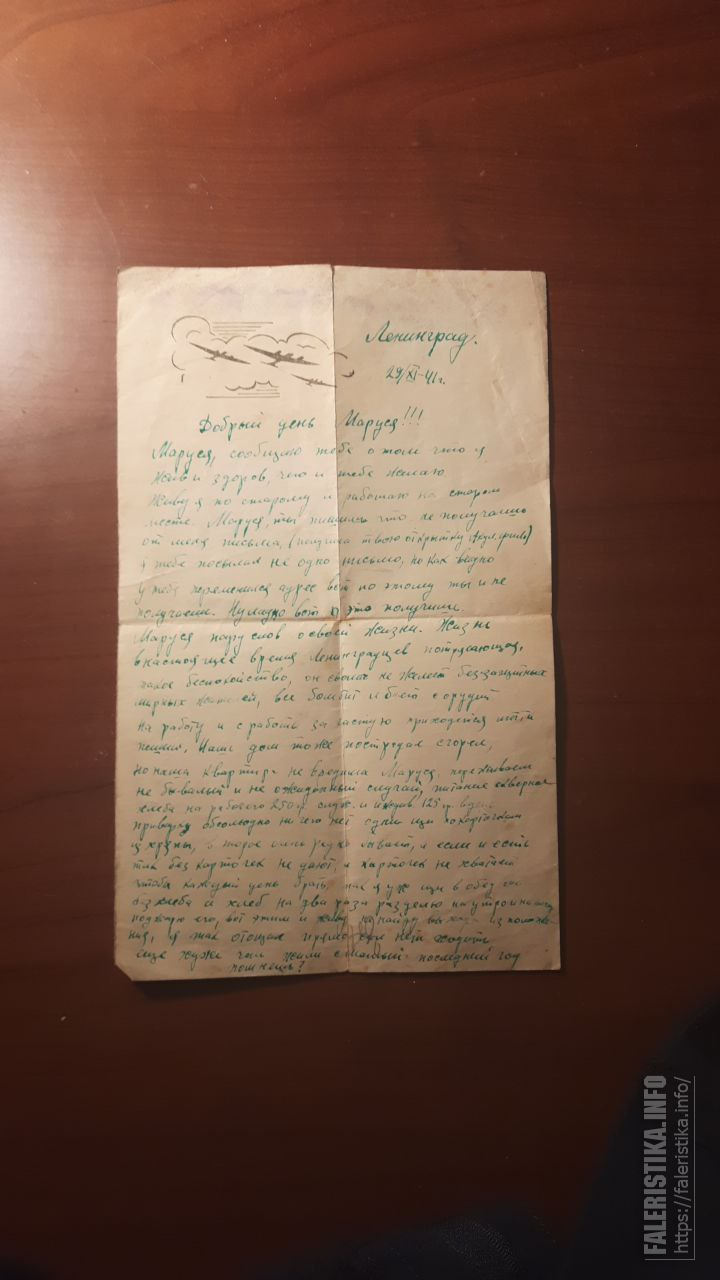 Ленинград.
29/XI-41 г.
Добрый день Маруся!!!
Маруся, сообщаю тебе о том что я
жив и здоров, чего и тебе желаю
Живу я по старому и работаю на старом
месте. Маруся, ты пишешь что не получаешь
от меня письма, (получил твою открытку
я тебе посылал не одно письмо, но как видно
у тебя переменился адрес вот по этому ты и не
получаешь. Ну ладно вот это получишь.
Маруся пару слов о своей жизни. Жизнь
в настоящее время Ленинградцев потрясающая,
такое беспокойство, он сволочь не жалеет беззащитных
мирных жителей, все бомбит и бьет с орудий
на работу и с работы за частую приходится итти
пешим. Наш дом тоже пострадал сгорел,
но наша квартира не вредима Маруся, переживаем
не бывалый и не ожиданный случай, питание скверное
хлеба на рабочего 250 гр. служ. и иждив 125 гр. в день
приварку обсолюдно ни чего нет одни щи по карточкам
из хряпы, второе очень редко бывает, а если и есть
так без карточек не дают, а карточек не хватает
чтобы каждый день брать, так я уж щи в обед
без хлеба и хлеб на два раза разделю на утро и на
поджарю его, вот этим и живу, не найду выхода из положе-
ния, я так отощал прямо сил нет ходить
еще хуже чем жили с мамый последний год
помнешь?
FALERISTIKA.INFO
https://faleristika.info/